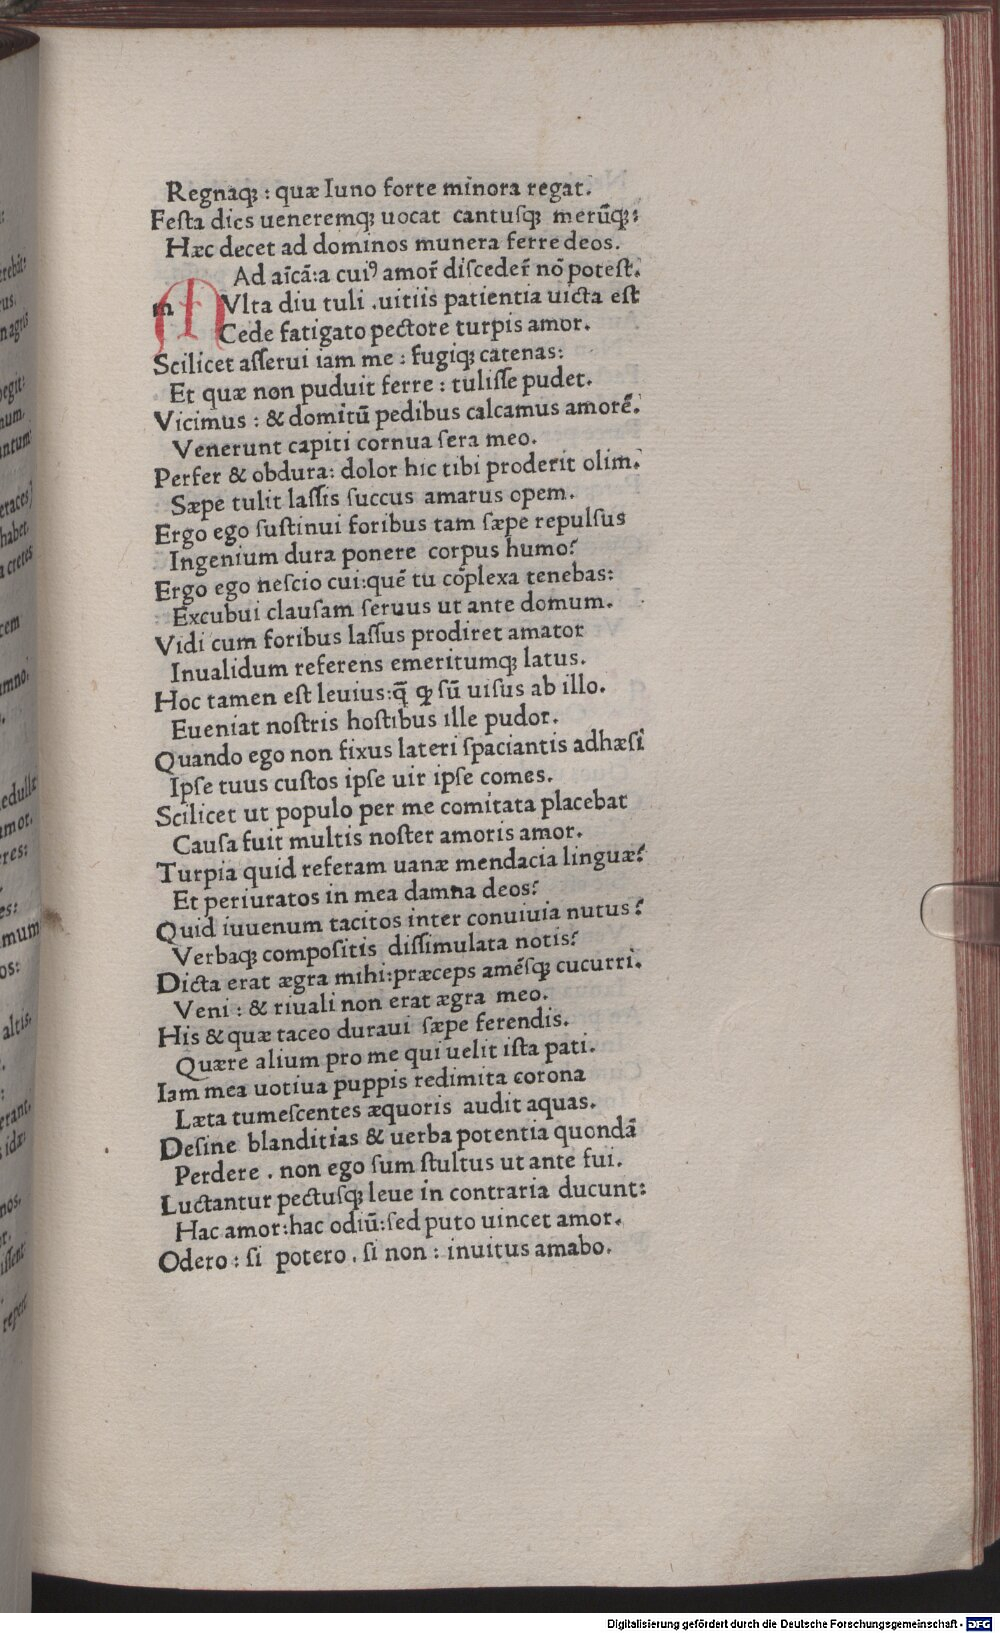 Regnaqꝫ : quæ Iuno forte minora regat.
Festa dies ueneremqꝫ uocat cantuſqꝫ merūqꝫ:
Hæc decet ad dominos munera ferre deos.
Ad aīcā:a cuiꝰ amor̄ diſceder̄ nō poteſt.
m MVlta diu tuli .uitiis patientia uicta eſt
Cede fatigato pectore turpis amor.
Scilicet aſſerui iam me : fugiqꝫ catenas:
Et quæ non puduit ferre : tuliſſe pudet.
Vicimus : & domitū pedibus calcamus amorē.
Venerunt capiti cornua ſera meo.
Perfer & obdura: dolor hic tibi proderit olim.
Sæpe tulit laſſis ſuccus amarus opem.
Ergo ego ſuſtinui foribus tam ſæpe repulſus
Ingenium dura ponere corpus humo?
Ergo ego neſcio cui:quē tu cōplexa tenebas:
Excubui clauſam ſeruus ut ante domum.
Vidi cum foribus laſſus prodiret amator
Inualidum referens emeritumqꝫ latus.
Hoc tamen eſt leuius:q̄ ꝙ ſū uiſus ab illo.
Eueniat noſtris hoſtibus ille pudor.
Quando ego non fixus lateri ſpaciantis adhæſi
Ipſe tuus cuſtos ipſe uir ipſe comes.
Scilicet ut populo per me comitata placebat
Cauſa fuit multis noſter amoris amor.
Turpia quid referam uanæ mendacia linguæ?
Et periuratos in mea damna deos?
Quid iuuenum tacitos inter conuiuia nutus?
Verbaqꝫ compoſitis diſſimulata notis?
Dicta erat ægra mihi:præceps amēſqꝫ cucurri.
Veni : & riuali non erat ægra meo.
His & quæ taceo duraui ſæpe ferendis.
Quære alium pro me qui uelit iſta pati.
Iam mea uotiua puppis redimita corona
Læta tumeſcentes æquoris audit aquas.
Deſine blanditias & uerba potentia quondā
Perdere . non ego ſum ſtultus ut ante fui.
Luctantur pectuſqꝫ leue in contraria ducunt:
Hac amor:hac odiū:ſed puto uincet amor.
Odero : ſi potero . ſi non : inuitus amabo.
Digitalisierung gefördert durch die Deutsche Forschungsgemeinschaft - DFG